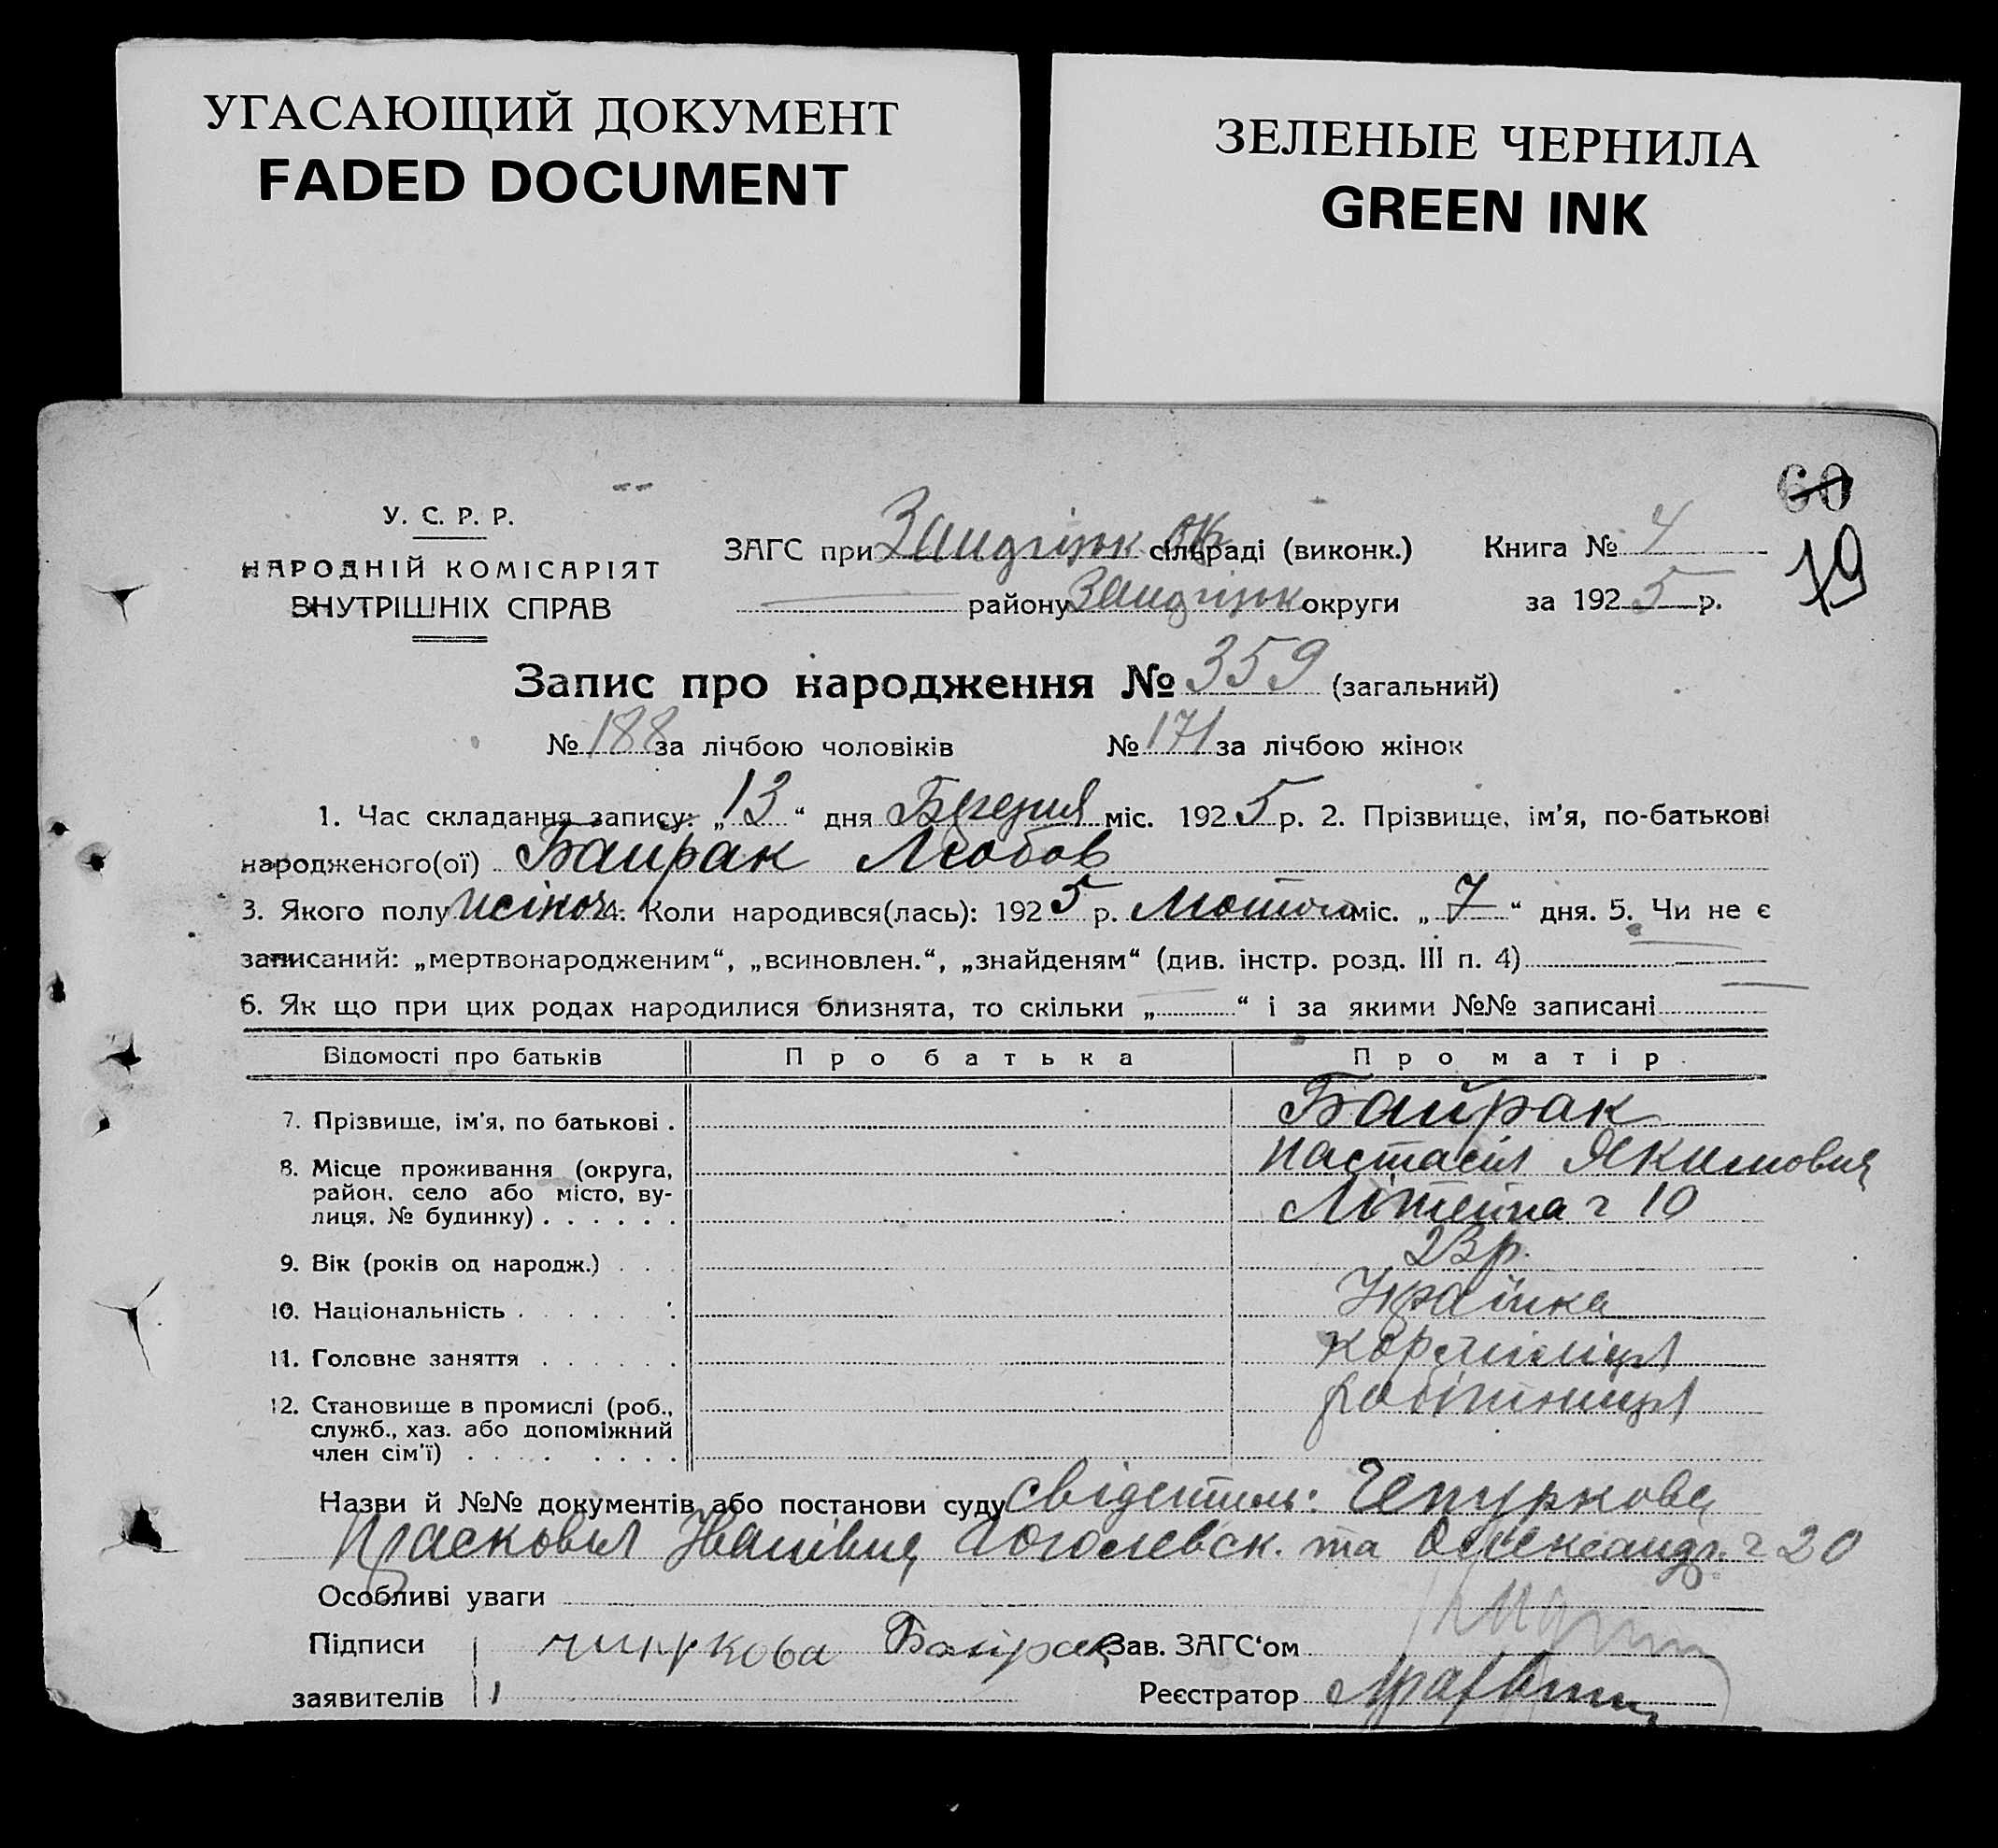 УГАСАЮЩИЙ ДОКУМЕНТ
FADED DOCUMENT
ЗЕЛЕНЫЕ ЧЕРНИЛА
GREEN INK
60
19
У. С. Р. Р.
НАРОДНІЙ КОМІСАРІЯТ
ВНУТРІШНІХ СПРАВ
ЗАГС при сільраді (виконк.)
району округи
Книга № 4
за 1925 р.
Запис про народження № 359 (загальний)
№ 188 за лічбою чоловіків № 171 за лічбою жінок
1. Час складання запису: „13“ дня Березня міс. 1925 р. 2. Прізвище, ім'я, по-батькові
народженого(ої) Байрак Любов
3. Якого полу жіноч. 4. Коли народився(лась): 1925 р. Лютого міс. „7“ дня. 5. Чи не є
записаний: „мертвонародженим“, „всиновлен.“, „знайденям“ (див. інстр. розд. III п. 4)
6. Як що при цих родах народилися близнята, то скільки „ “ і за якими №№ записані
Відомості про батьків Про батька Про матір
7. Прізвище, ім'я, по батькові . Байрак
Настасія Якимовна
8. Місце проживання (округа,
район, село або місто, ву-
лиця, № будинку) . . . . . . Літейна ч 10
9. Вік (років од народж.) . . . 23 р.
10. Національність . . . . . . Українка
11. Головне заняття . . . . . .
12. Становище в промислі (роб., робітниця
служб., хаз. або допоміжний
член сім'ї) . . . . . . . .
Назви й №№ документів або постанови суду свідетель: Чепуркова
Прасковья Іванівна Гоголевск. та Олександр. ч 20
Особливі уваги
Підписи Байрак Зав. ЗАГС'ом
заявителів Реєстратор